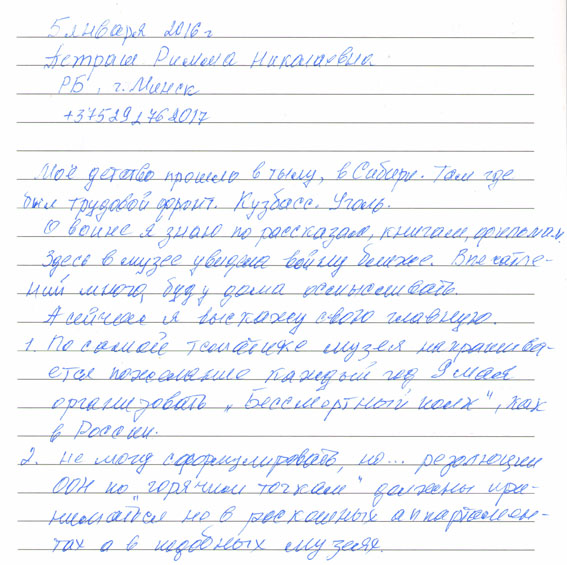 5 января 2016 г
Астраш Римма Николаевна
РБ, г. Минск
+375292762017
Моё детство прошло в тылу, в Сибири. Там где
был трудовой фронт. Кузбасс. Уголь.
О войне я знаю по рассказам, книгам, фильмам,
Здесь в музее увидела войну ближе. Впечатле-
ний много, буду дома осмысливать.
А сейчас я выскажу свою главную.
1. По самой тематике музея напрашива-
ется пожелание каждый год 9 мая
организовать „Бессмертный полк", как
в России.
2. не могу сформулировать, но... резолюции
ООН по "горячим точкам" должны при-
ниматься не в роскошных аппартамен-
тах а в подобных музеях.